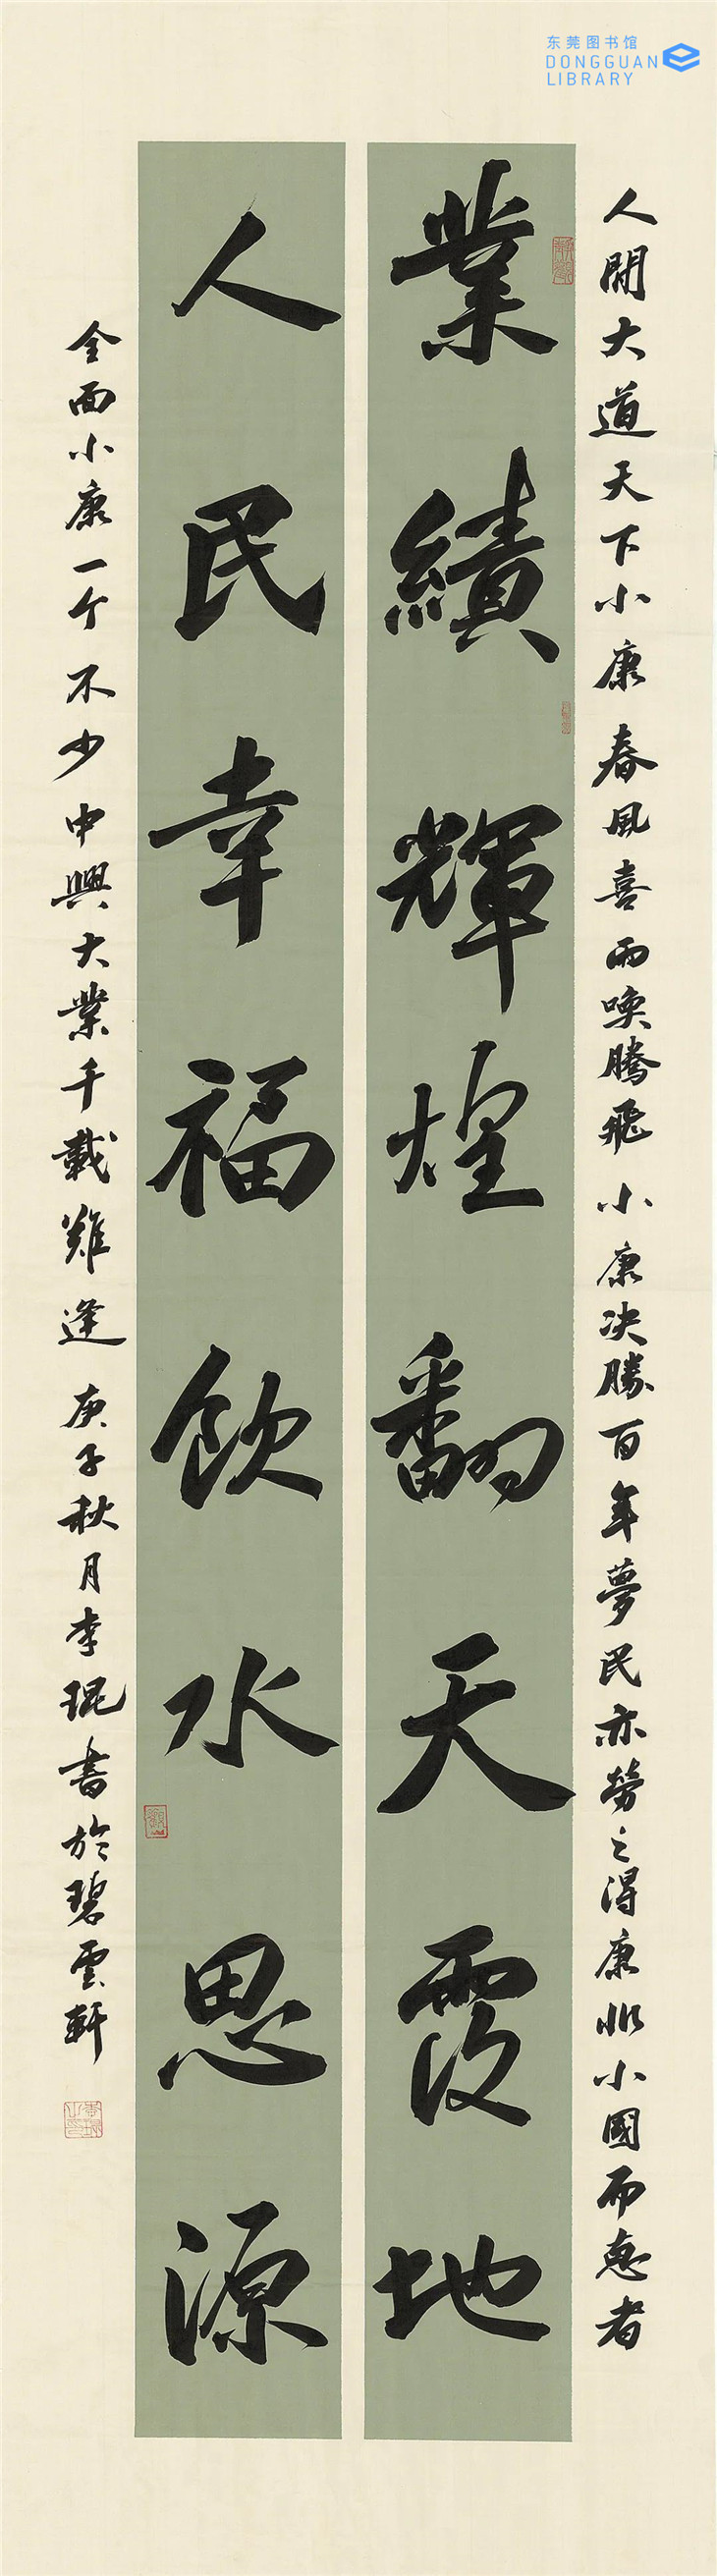 东莞图书馆
DONGGUAN
LIBRARY
人間大道天下小康春風喜雨喚騰飛小康决勝百年夢民亦勞之得康非小國而惠者
業績輝煌翻天覆地
人民幸福飲水思源
全面小康一个不少中興大業千載難逢庚子秋月李琨書於碧雲軒